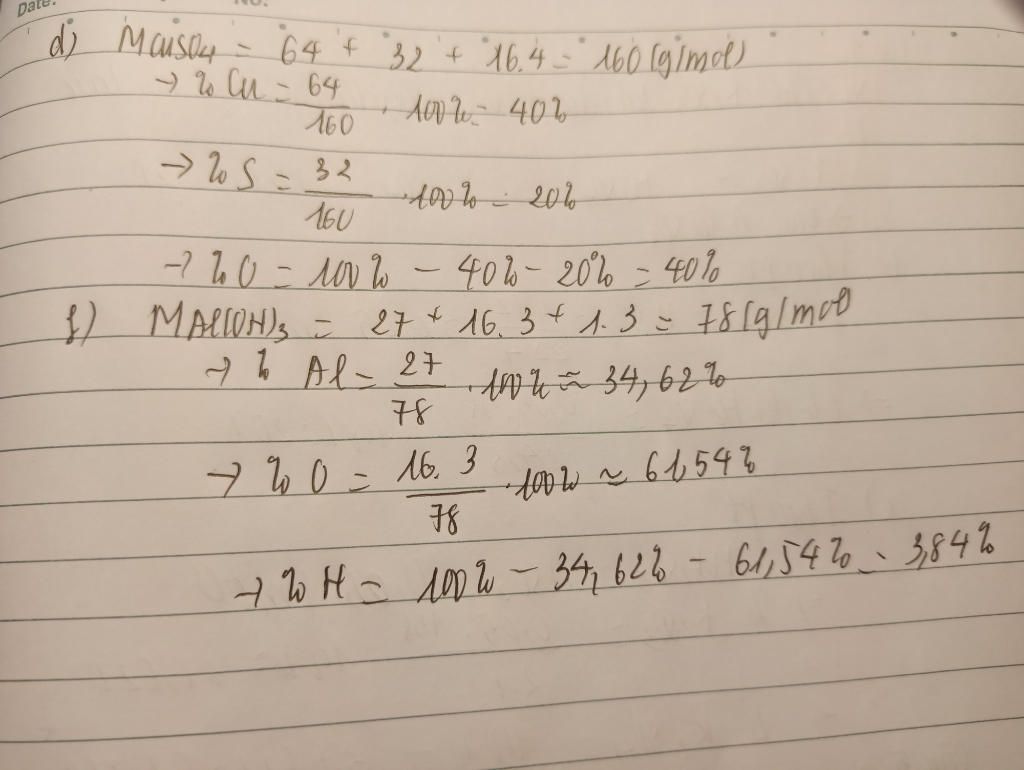 Date:
No.
d) MCuSO4 = 64 + 32 + 16.4 = 160 (g/mol)
→ % Cu = 64/160 . 100% = 40%
→ % S = 32/160 . 100% = 20%
→ % O = 100% - 40% - 20% = 40%
f) MAl(OH)3 = 27 + 16.3 + 1.3 = 78 (g/mol
→ % Al = 27/78 . 100% ≈ 34,62%
→ % O = 16.3/78 . 100% ≈ 61,54%
→ % H = 100% - 34,62% - 61,54% = 3,84%